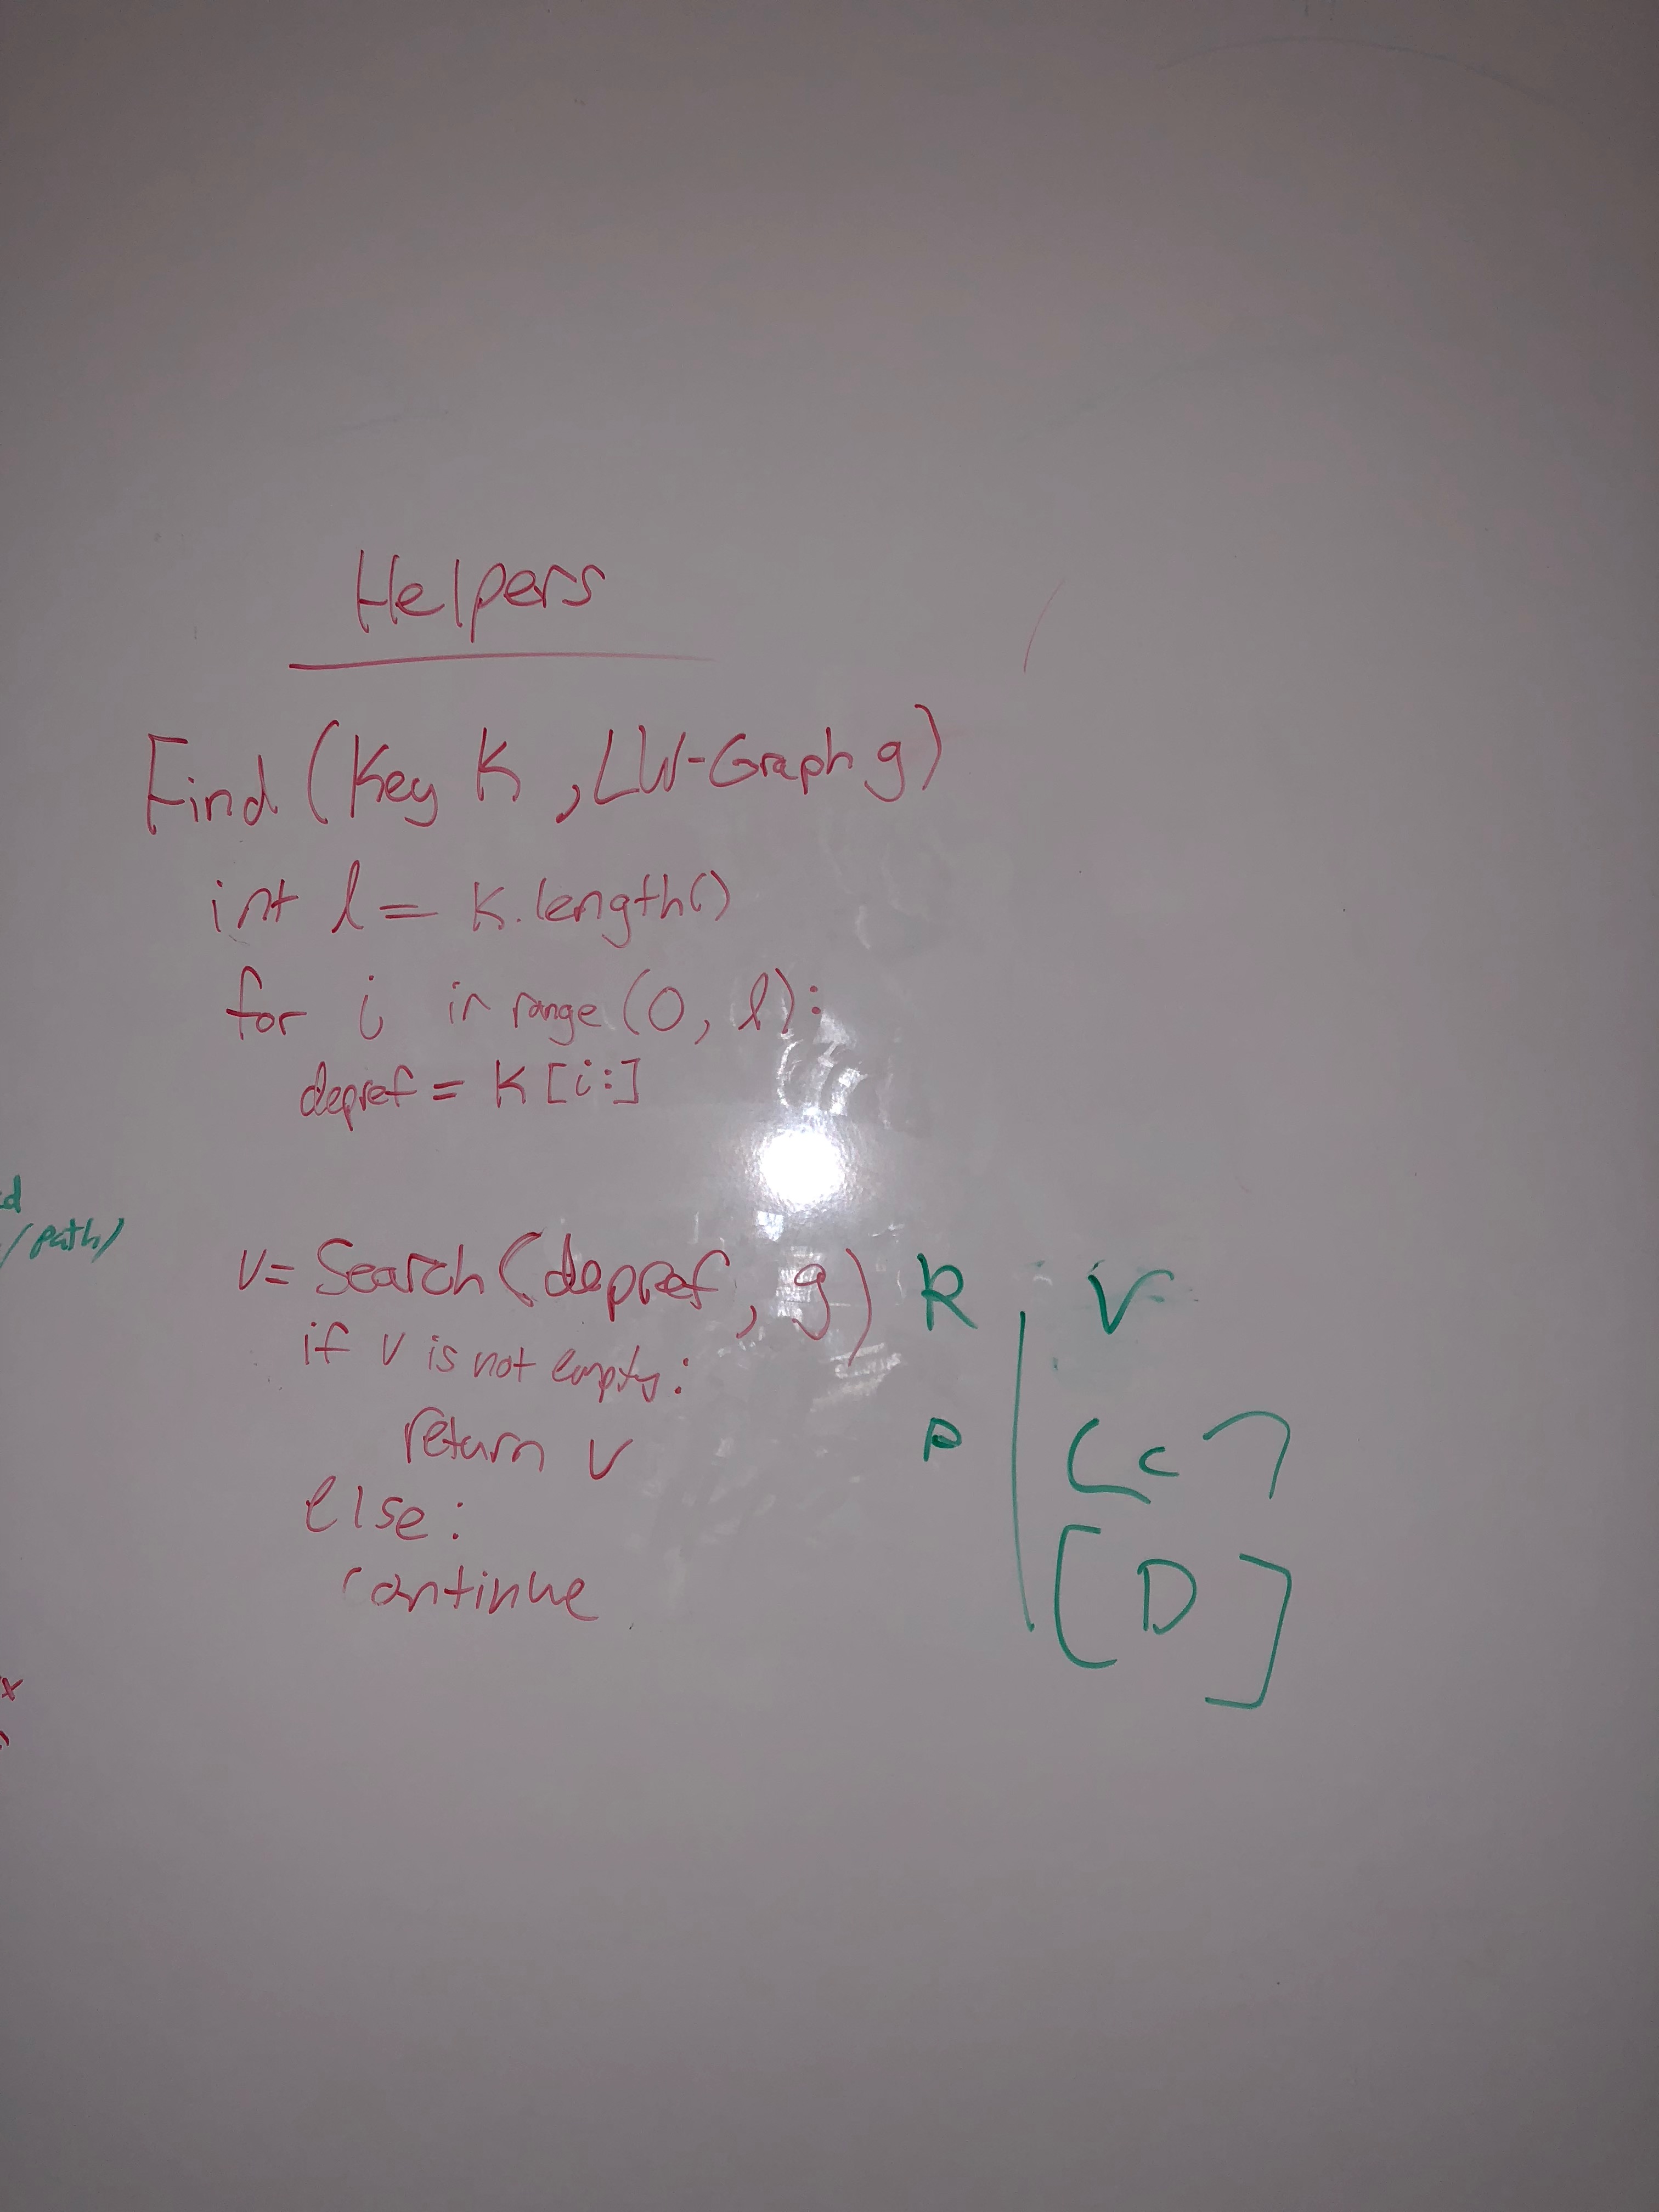 Helpers
Find (Key K, LW-Graph g)
int l = K.length()
for i in range (0, l):
depref = K[i:]
d
/path)
v= Search(depref, g)
if v is not empty:
return v
else:
continue
K V
P [c]
[D]
x